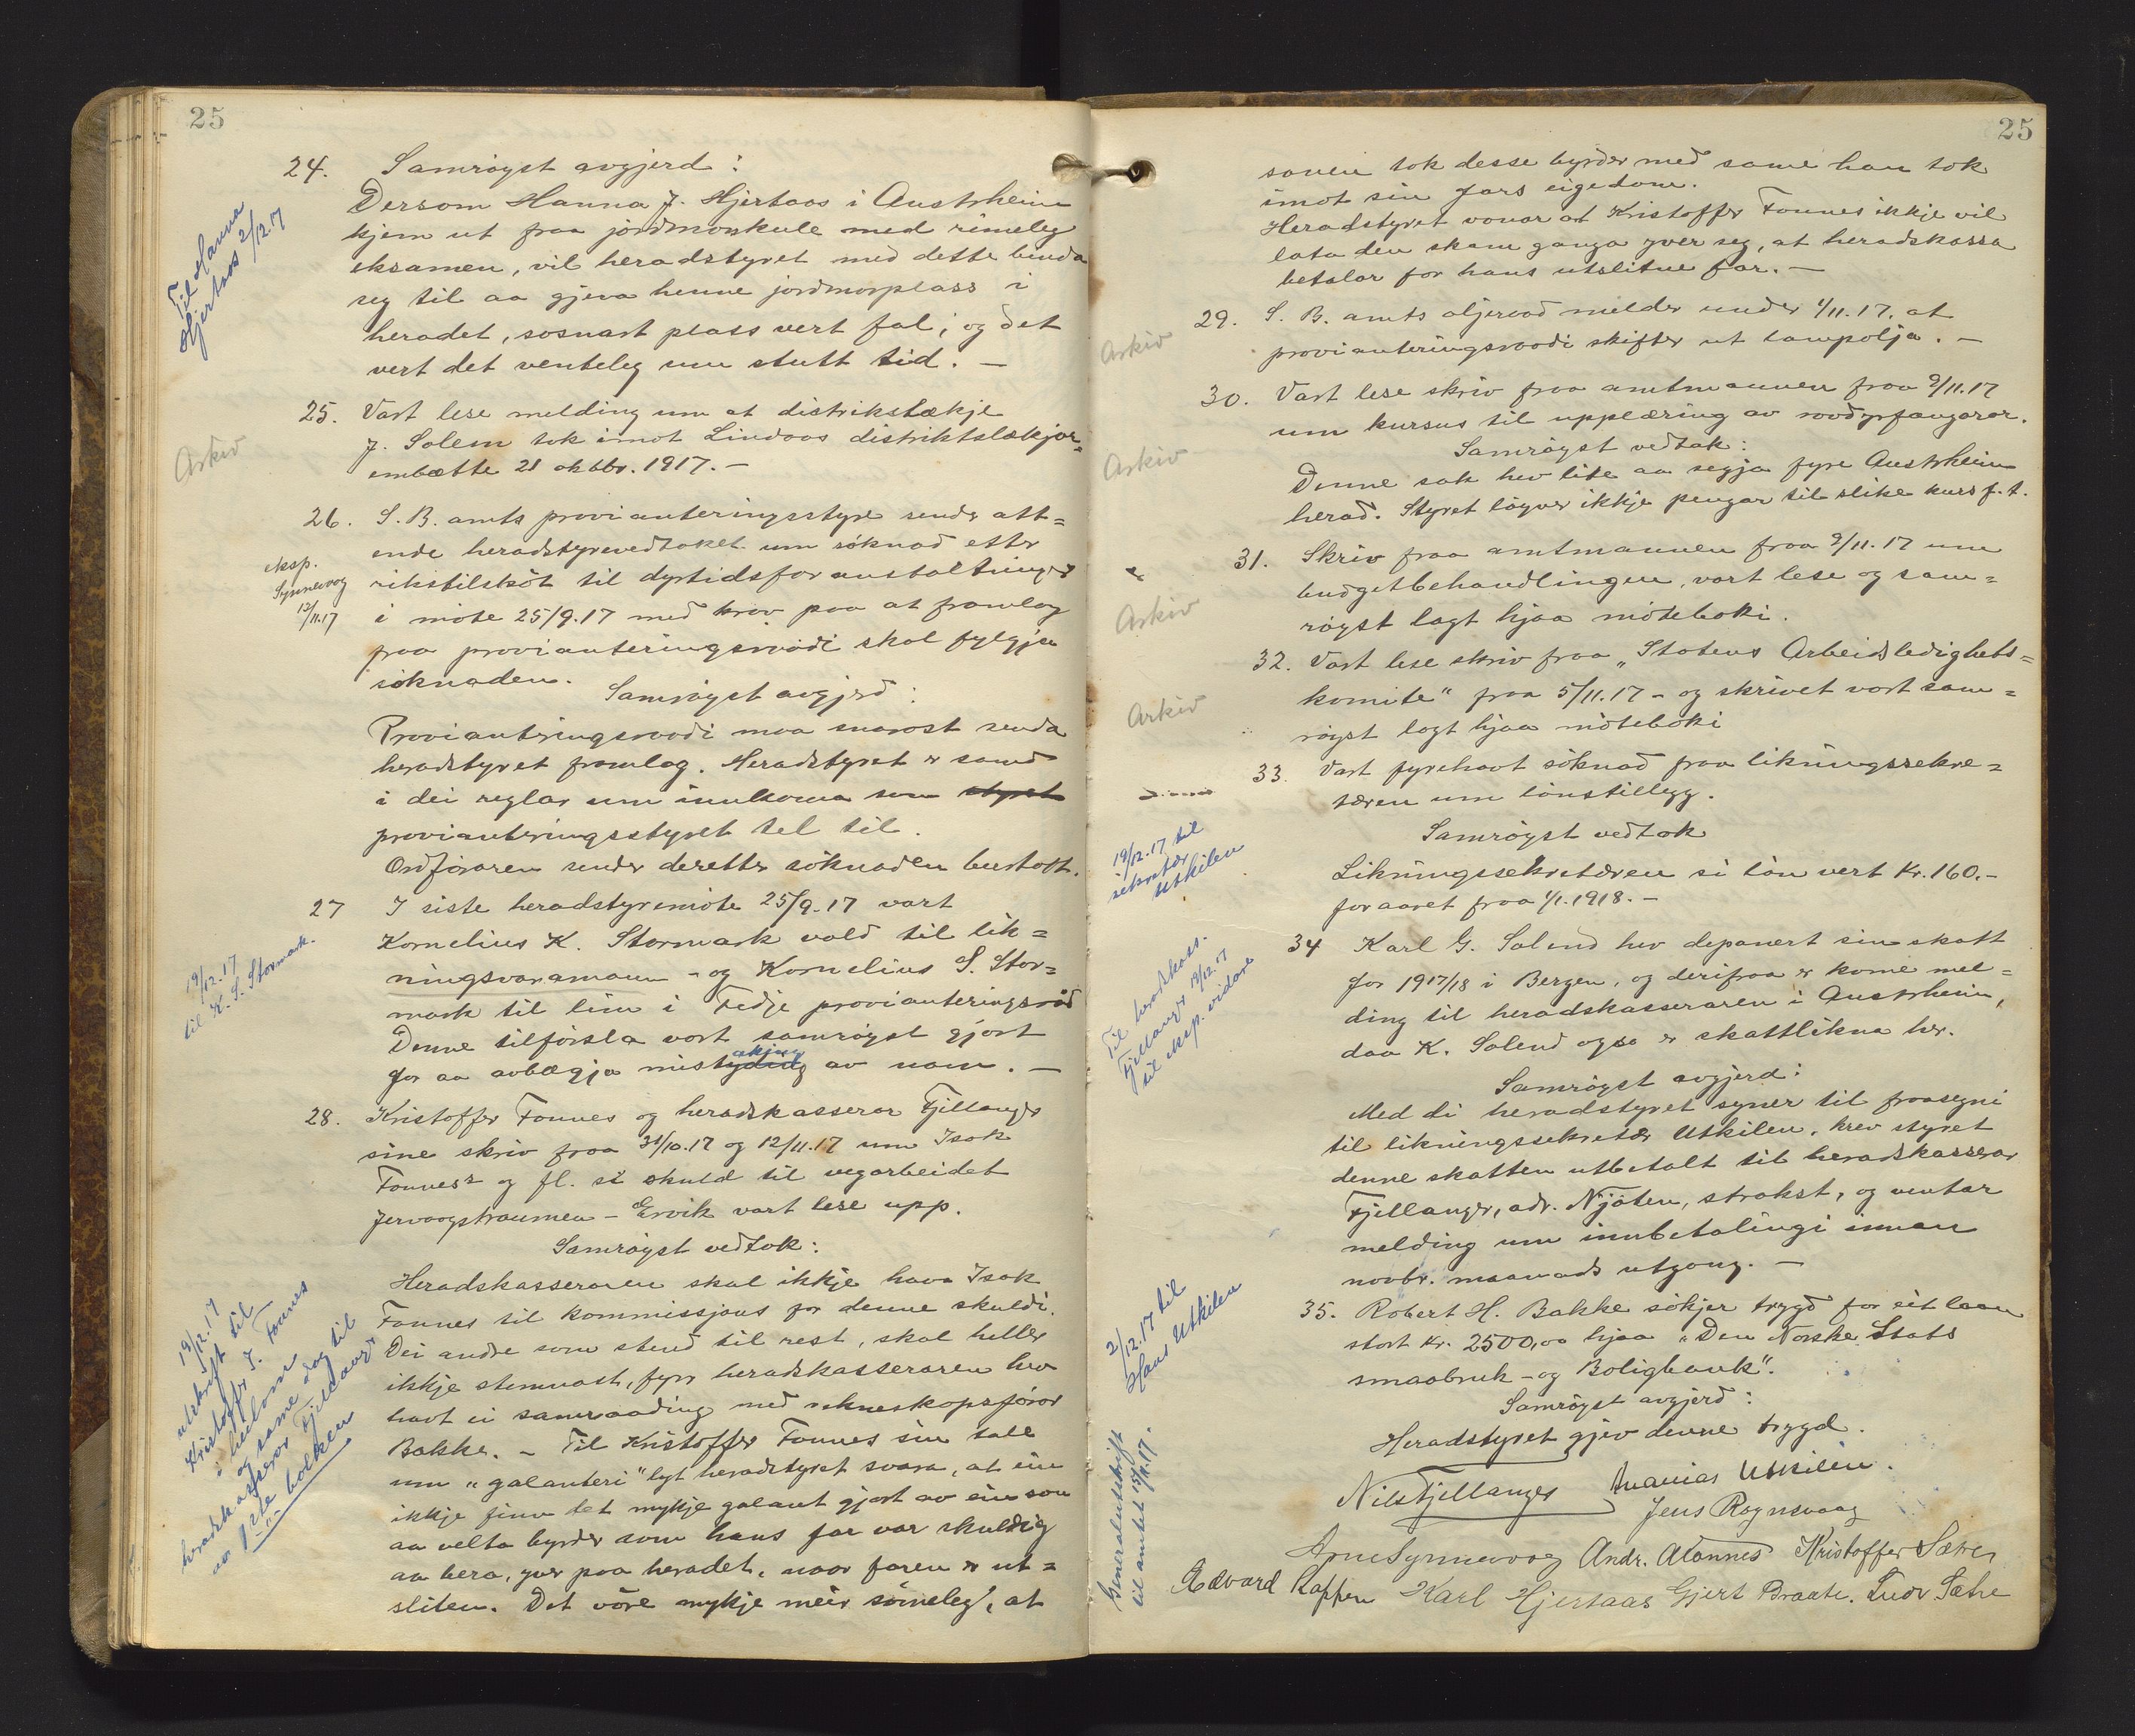 25
24. Samrøyst avgjerd:
Til Hanna
Hjertaas 2/12.17
Dersom Hanna J. Hjertaas i Austrheim
kjem ut fraa jordmorskule med rimeleg
eksamen, vil heradstyret med dette binda
seg til aa gjeva henne jordmorplass i
heradet, sosnart plass vert fal; og det
vert det venteleg um stutt tid. —
25. Vart lese melding um at distrikslækje
Arkiv
J. Solem tok imot Lindaas distriktslækjar=
embætte 21 oktbr. 1917. —
26. S. B. amts provianteringsstyre sender att=
ende heradstyrevedtaket um søknad etter
eksp.
Synnevog
12/11.17
rikstilskot til dyrtidsforanstaltninger
i møte 25/9.17 med krav paa at framlag
fraa provianteringsraadi skal fylgja
søknaden.
Samrøyst avgjerd:
Provianteringsraadi maa snarast senda
heradstyret framlag. Heradstyret er samd
i dei reglar um innkoma som styret
provianteringsstyret tel til.
Ordføraren sender deretter søknaden burtatt.
27 I siste heradstyremøte 25/9.17 vart
Kornelius K. Stormark vald til lik=
19/12.17
til K. S. Stormark.
ningsvaramann - og Kornelius S. Stor=
mark til lim i Fedje provianteringsraad
Denne tilførsla vart samrøyst gjort
for aa avbægja mistyding av namn. —
28. Kristoffer Fonnes og heradskasserar Fjellanger
sine skriv fraa 31/10.17 og 12/11.17 um Isak
Fonnes og fl. si skuld til vegarbeidet
Jervaagstraumen - Ervik vart lese upp.
Samrøyst vedtok:
19/12.17
utskrift til
Kristoffer J. Fonnes
i heilom
og same dag til
heradskasserar Fjellanger
av 1ste bolken
Heradskasseraren skal ikkje hava Isak
Fonnes til kommissjons for denne skuldi.
Dei andre som stend til rest, skal heller
ikkje stemnast, fyrr heradskasseraren hev
havt ei samraading med rekneskapsførar
Bakke. - Til Kristoffer Fonnes sin tale
um "galanteri" lyt heradstyret svara, at ein
ikkje finn det mykje galant gjort av ein son
aa velta byrder som hans far var skuldig
aa bera, yver paa heradet, naar faren er ut=
sliten. Det vøre mykje meir sømeleg, at
25
sonen tok desse byrder med same han tok
imot sin fars eigedom.
Heradstyret vonar at Kristoffer Fonnes ikkje vil
lata den skam ganga yver seg, at heradskassa
betalar for hans utslitne far. —
Arkiv
29. S. B. amts oljeraad melder under 1/11.17, at
provianteringsraadi skifter ut lampolja. —
Arkiv
30. Vart lese skriv fraa amtmannen fraa 9/11.17
um kursus til upplæring av rovdyrfangarar.
Samrøyst vedtak:
Denne sak hev lite aa segja fyre Austrheim
herad. Styret løyver ikkje pengar til slike kurs f. t.
Arkiv
31. Skriv fraa amtmannen fraa 9/11.17 um
budgetbehandlingen, vart lese og sam=
røyst lagt hjaa møteboki.
Arkiv
32. Vart lese skriv fraa "Statens Arbeidsledighets=
komite" fraa 5/11.17 - og skrivet vart sam=
røyst lagt hjaa møteboki
33. Vart fyrehavt søknad fraa likningssekre=
tæren um lønstillegg.
Samrøyst vedtok
19/12.17 til
sekretær
Utkilen
Likningssekretæren si løn vert Kr. 160.-
for aaret fraa 1/1.1918. —
34 Karl G. Solend hev deponert sin skatt
for 1917/18 i Bergen, og derifraa er kome mel=
ding til heradskasseraren i Austrheim,
daa K. Solend ogso er skattlikna her.
Til heradskass.
Fjellanger 19/12.17
til eksp. vidare
Samrøyst avgjerd:
Med di heradstyret syner til fraasegni
til likningssekretær Utkilen, krev styret
denne skatten utbetalt til heradskasserar
Fjellanger, adr. Njøten, strakst, og ventar
melding um innbetalingi innan
novbr. maanads utgong. —
2/12.17 til
Hans Utkilen
35. Robert H. Bakke søkjer trygd for eit laan
stort kr. 2500,00 hjaa "Den Norske Stats
smaabruk - og Boligbank".
Samrøyst avgjerd:
Heradstyret gjev denne trygd.
Generalutskrift
til amtet 15/11.17.
Nils Fjellanger Ananias Utkilen.
Jens Rognsvaag
Arne Synnevaag Andr. Atonnes Kristoffer Sætre
Edvard Kappen Karl Hjertaas Gjert Braate. Ludv Sætre